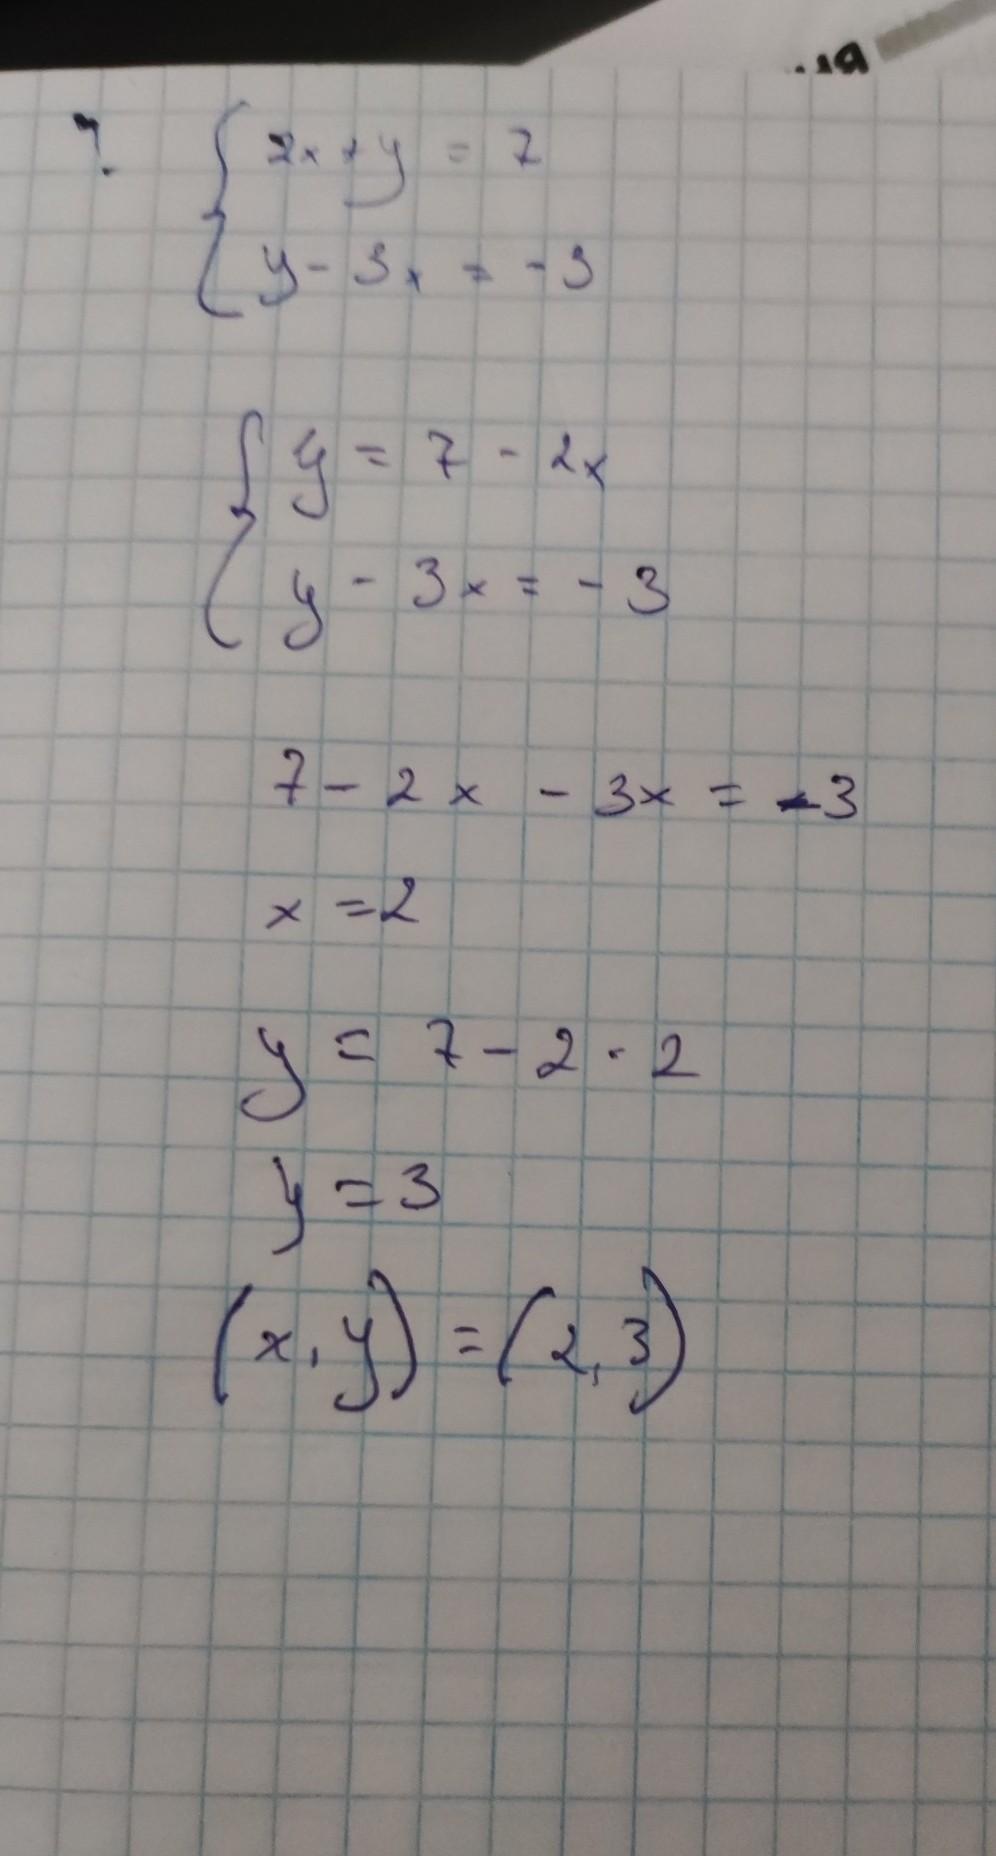 1. { 2x + y = 7
y - 3x = -3
{ y = 7 - 2x
y - 3x = -3
7 - 2x - 3x = -3
x = 2
y = 7 - 2 · 2
y = 3
(x, y) = (2, 3)